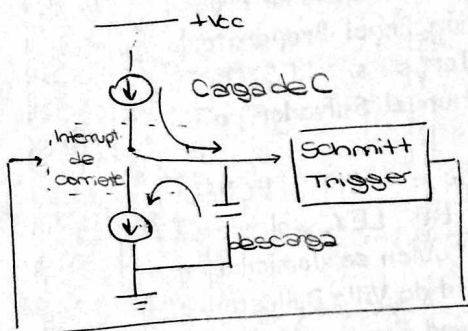 +Vcc
Carga de C
Interrupt.
de
corriete
Schmitt
Trigger
descarga